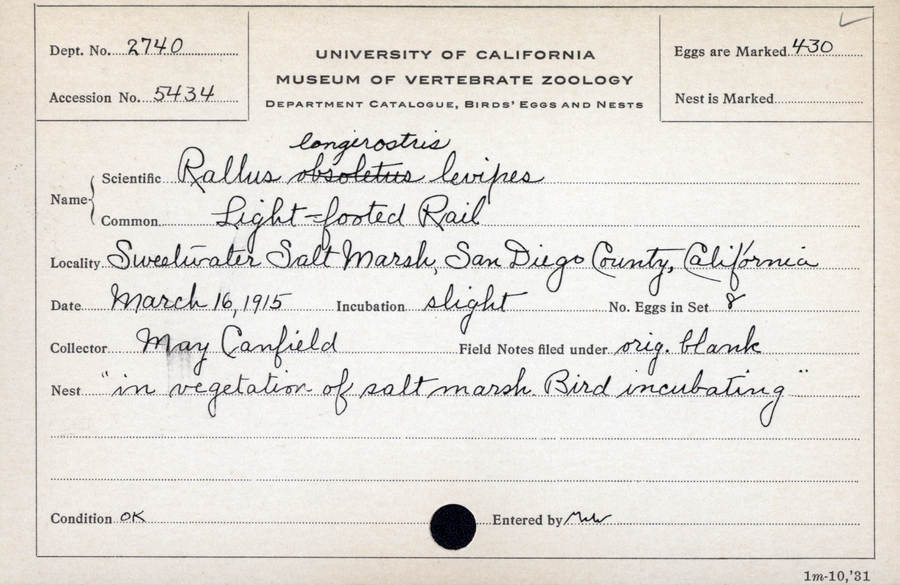 Dept. No. 2740
Accession No. 5434
UNIVERSITY OF CALIFORNIA
MUSEUM OF VERTEBRATE ZOOLOGY
DEPARTMENT CATALOGUE, BIRDS' EGGS AND NESTS
Eggs are Marked 430
Nest is Marked
longirostris
Name Scientific Rallus obsoletus levipes
Common Light-footed Rail
Locality Sweetwater Salt Marsh, San Diego County, California
Date March 16, 1915 Incubation slight No. Eggs in Set 8
Collector May Canfield Field Notes filed under orig. blank
Nest "in vegetation of salt marsh. Bird incubating"
Condition OK Entered by
1m-10,'31